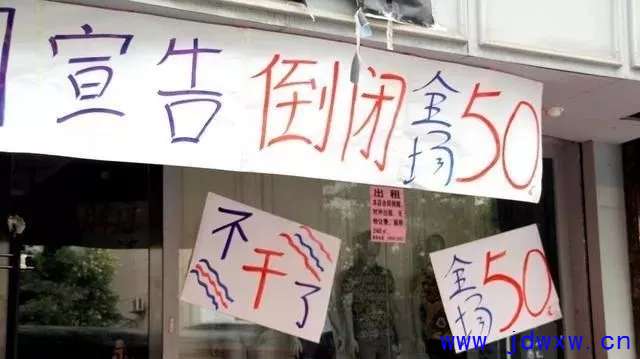 宣告倒闭全场50元
出租
不干了
全场50元
www.jdwxw.cn